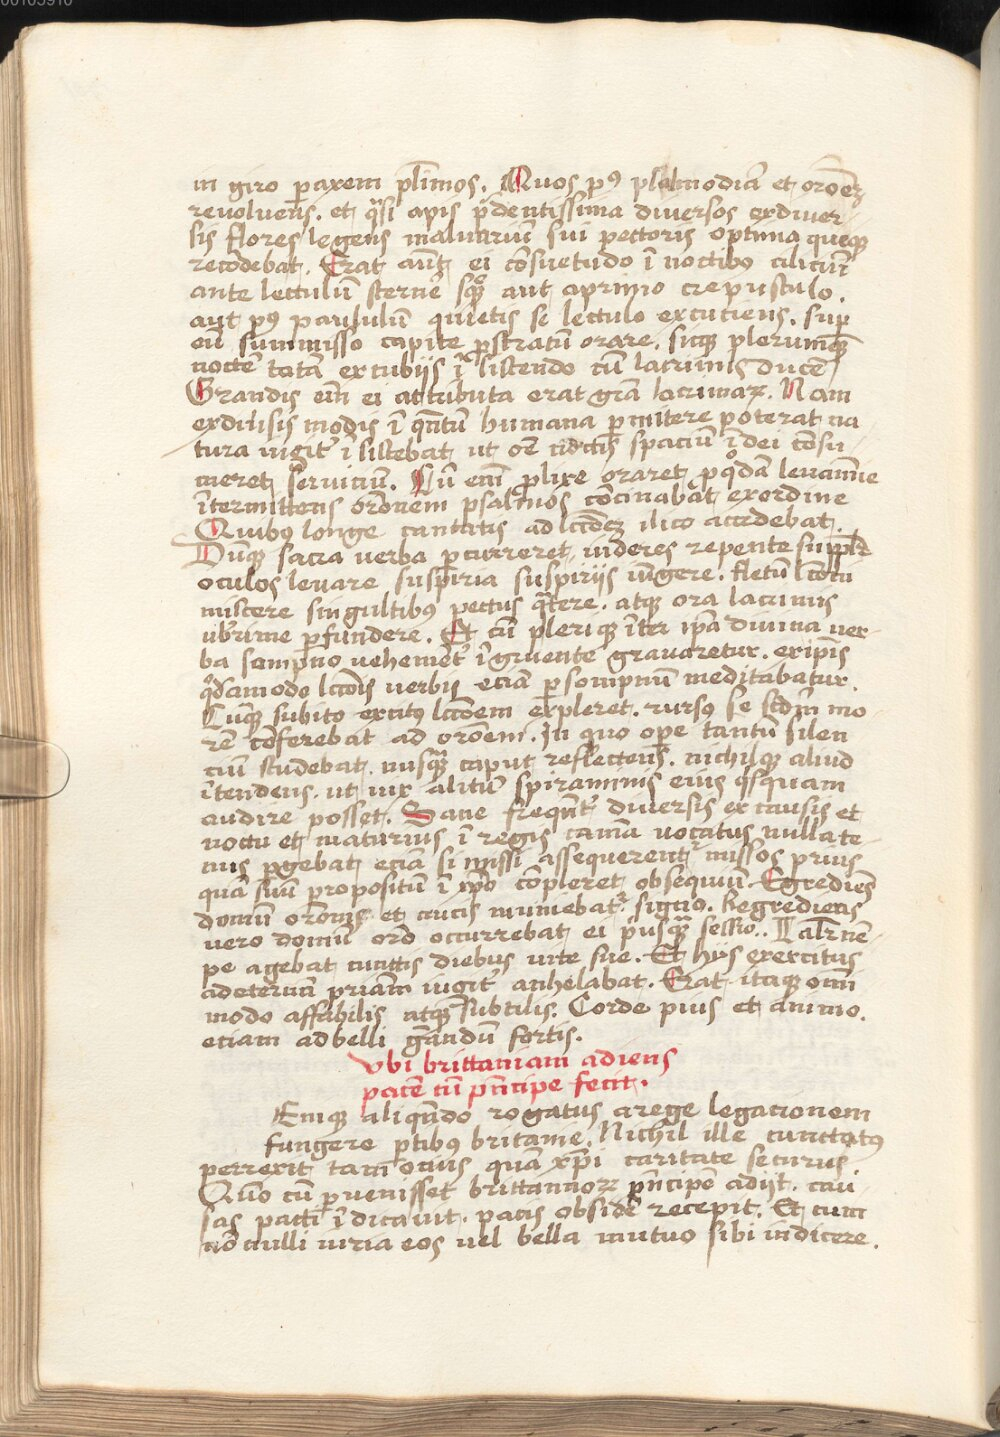 00105910
in giro paxem pl̄imos. Quos p9 psalmodiā et orōeꝫ
revoluens. et q̄si apis pͬdentissima diversos ex diver
sis flores legens in aluariū sui pectoris optima queqꝫ
recōdebat. Erat autꝫ ei cōsuetudo ī noctibus ciliciū
ante lectulū sternē sqꝫ aut a primo crepusculo.
aut p9 paululū quietis se lectulo excutiens. sup
eū summisso capite ꝓstratū orare. sicqꝫ plerumqꝫ
noctē totā excubiis ī sistendo cū lacrimis ducē
Grandis eīn ei attributa erat grā lacrimaꝝ. Nam
ex diūsis modis ī qn̄tū humana ꝑmittere poterat na
tura iugit' īsistebat ut oē noctis spaciū ī dei cōsu
meret serviciū. Cū enī ꝓlixe oraret ꝓqͦdā levamīe
ītermittens orōnem psalmos cōcinabat ex ordine
Quibus longe cantatis ad lcōeꝫ ilico accedebat.
Dūqꝫ sacra verba ꝑcurreret videres repente suppl'r
oculos levare suspiria suspiriis iūgere. fletū lcōni
miscere singultibus pectus q̄tere. atqꝫ ora lacrimis
ub'rime ꝑfundere. Et cū pleriqꝫ īter ipā divina ver
ba sompno vehemēt' īgruente gravaretur. ex ipīs
qͦdāmodo lcōnis verbis eciā ꝑ sompnum meditabatur.
Cūqꝫ subito excitus lcōem expleret. rursꝰ se scd̄m mo
rē cōferebat ad orōem. In quo oꝑe tantū silen
ciū studebat. nusqꝫ caput reflectens. nichilqꝫ aliud
ītendens. ut vix alitū spiraminis eius qͥsquam
audire posset. Sane freqūt' diversis ex causis et
noctu et maturius ī regis camā vocatus nullate
nus ꝑgebat eciā si missi assequerent' missos prius
quā suū propositū ī xp̄o cōpleret obsequiū. Egrediēs
domū orōnis et crucis muniebat' signo. Regrediens
vero domū orō occurrebat ei pͥusqꝫ sessio. Talr' nē
pe agebat cunctis diebus vite sue. Et hys exercitus
ad eternā priam iugit' anhelabat. Erat itaqꝫ omī
modo affabilis atqꝫ subtilis. Corde pius et animo.
eciam ad belli gerandū fortis.
Ubi brittaniam adiens
pacē cū pͥncipe fecit.
Emqꝫ aliqn̄do rogatus a rege legacionem
fungere ꝑtibus britanie. Nichil ille cunctatus
perrexit tam ocius quā xp̄i caritate securus.
Quo cū ꝑvenisset brittannoꝝ pͥncipē adijt. cau
sas pacti īdicavit. pacis obsidē recepit. Et cum
nōnulli iuria eos vel bella mutuo sibi indicere.